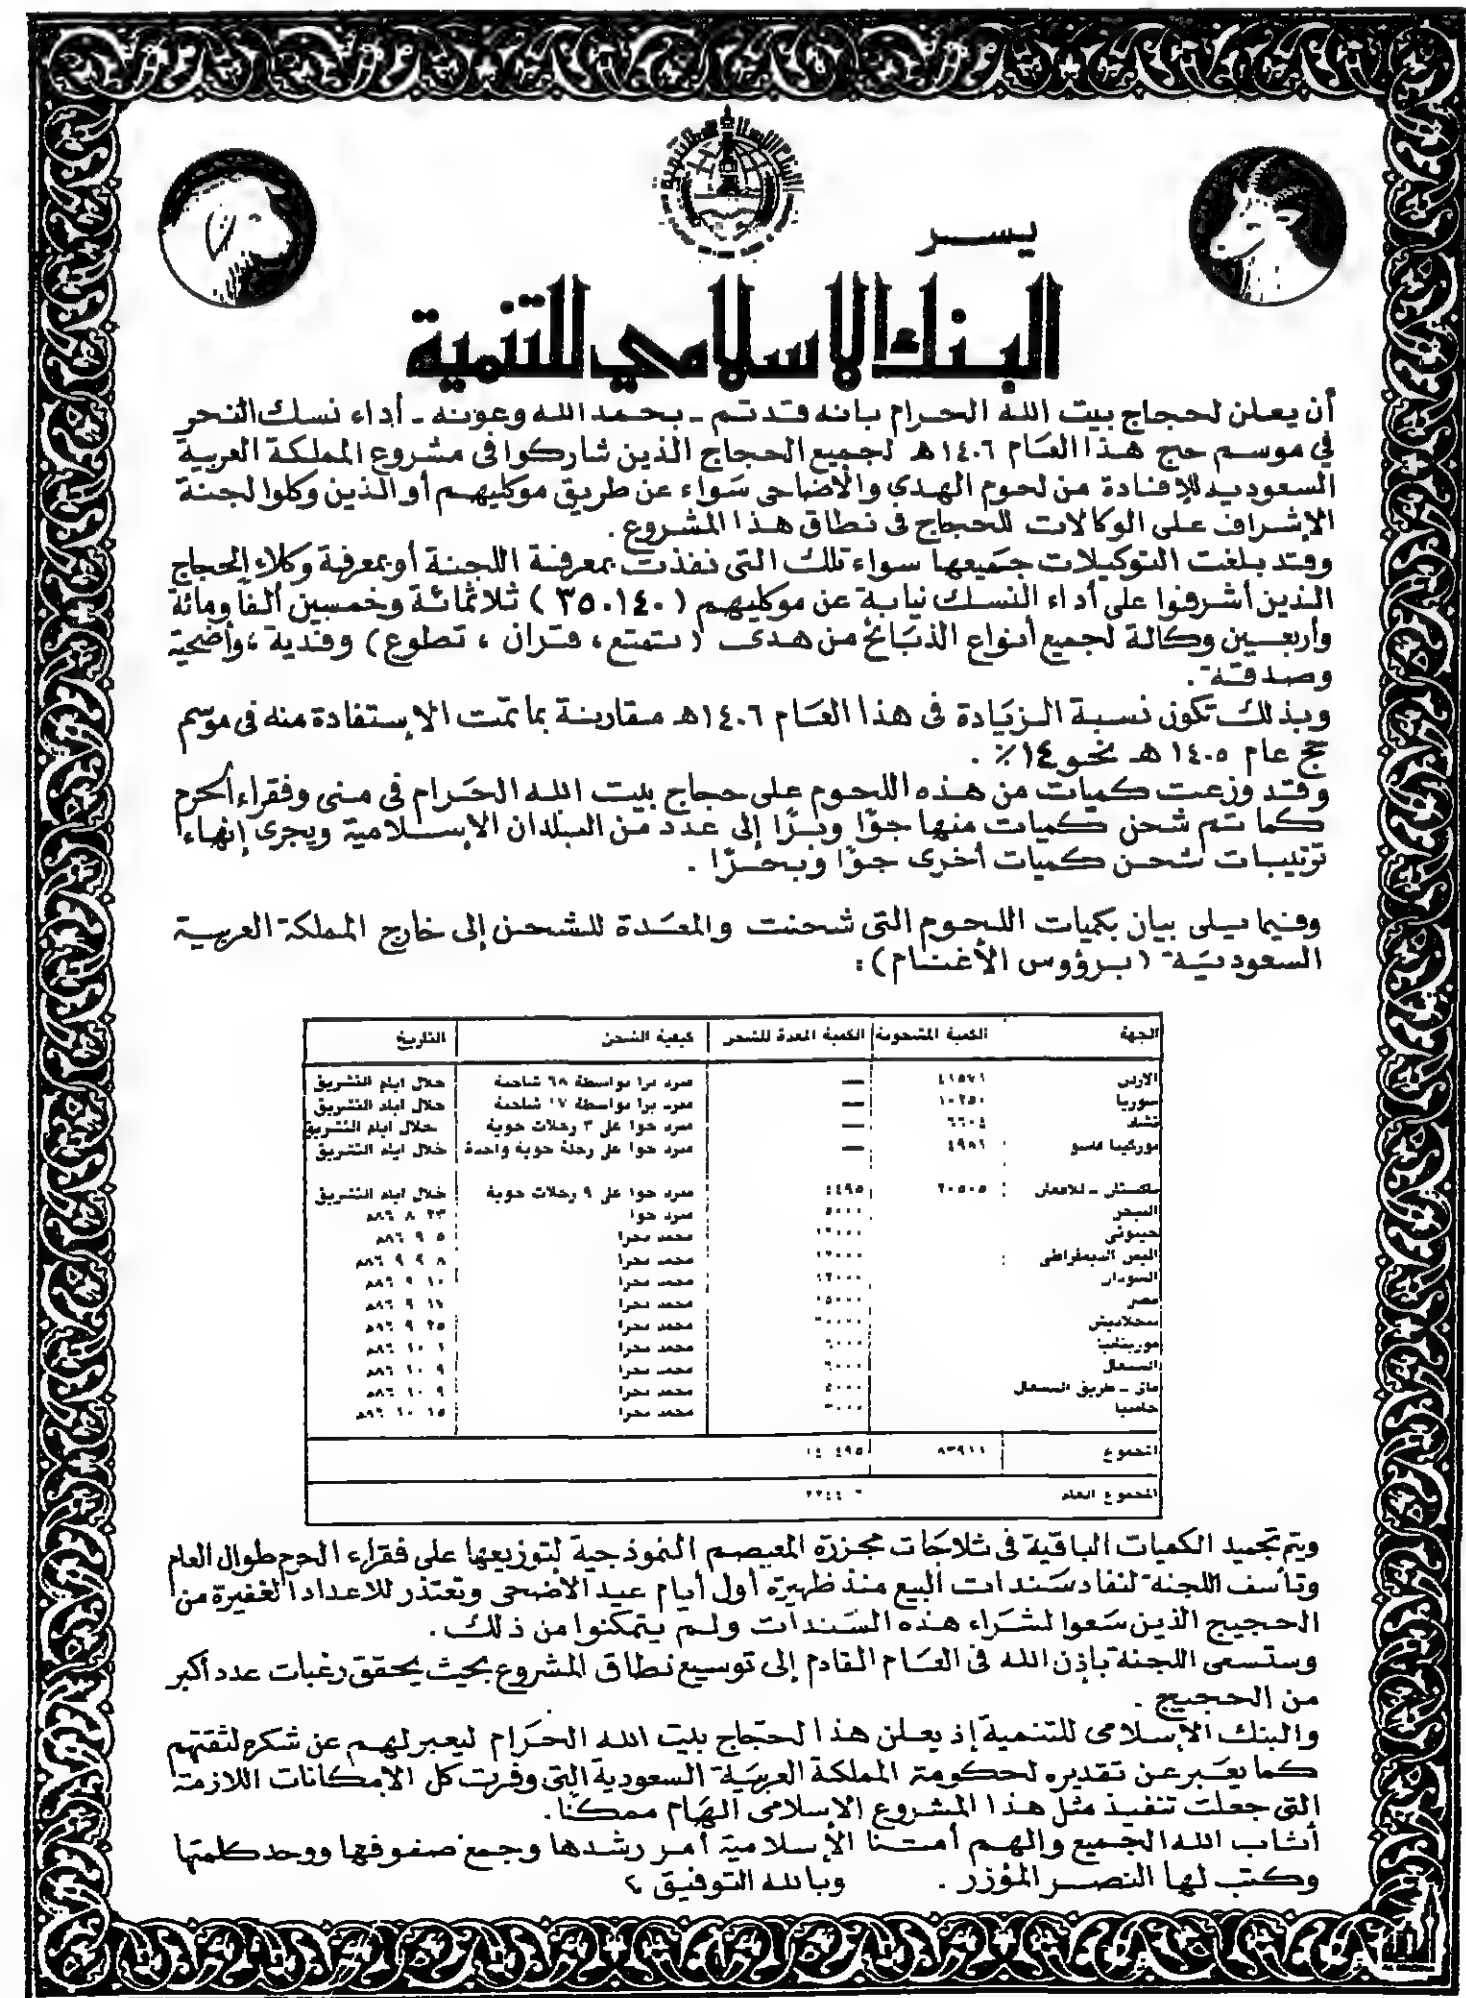 يسر
البنك الاسلامي للتنمية
أن يعلن لحجاج بيت الله الحرام بانه قد تم - بحمد الله وعونه - أداء نسك النحر
في موسم حج هذا العام ١٤٠٦ه لجميع الحجاج الذين شاركوا فى مشروع المملكة العربية
السعودية للإفادة من لحوم الهدي والأضاحى سواء عن طريق موكليهم أو الذين وكلوا لجنة
الإشراف على الوكالات للحجاج فى نطاق هذا المشروع .
وقد بلغت التوكيلات جميعها سواء تلك التى نفذت بمعرفة اللجنة أو بمعرفة وكلاء الحجاج
الذين أشرفوا على أداء النسك نيابة عن موكليهم ( ٣٥٠١٤٠ ) ثلاثمائة وخمسين ألفا ومائة
وأربعين وكالة لجميع أنواع الذبائح من هدى ( تمتع ، قران ، تطوع ) وفدية ، وأضحية
وصدقة .
وبذلك تكون نسبة الزيادة فى هذا العام ١٤٠٦ه مقارنة بما تمت الإستفادة منه فى موسم
حج عام ١٤٠٥ هـ نحو ١٤٪ .
وقد وزعت كميات من هذه اللحوم على حجاج بيت الله الحرام فى منى وفقراء الحرم
كما تم شحن كميات منها جوًا وبرًا إلى عدد من البلدان الإسلامية ويجرى إنهاء
ترتيبات شحن كميات أخرى جوًا وبحرًا .
وفيما يلى بيان بكميات اللحوم التى شحنت والمعدة للشحن إلى خارج المملكة العربية
السعودية ( برؤوس الأغنام ) :
الجهة الكمية المشحونة الكمية المعدة للشحن كيفية الشحن التاريخ
الاردن ٤١٥٧٦ — مبرد برا بواسطة ٦٨ شاحنة خلال ايام التشريق
سوريا ١٠٢٥٠ — مبرد برا بواسطة ١٧ شاحنة خلال ايام التشريق
تشاد ٦٦٠٤ — مبرد جوا على ٣ رحلات جوية خلال ايام التشريق
بوركينا فاسو ٤٩٨٦ — مبرد جوا على رحلة جوية واحدة خلال ايام التشريق
باكستان ٢٠٥٠٥ ٤٤٩٥ مبرد جوا على ٩ رحلات جوية خلال ايام التشريق
النيجر ٥٠٠٠ مبرد جوا ٢٣ ٨ ٨٦م
جيبوتي مجمد بحرا ٥ ٩ ٨٦م
اليمن الديمقراطي مجمد بحرا ٨ ٩ ٨٦م
السودان مجمد بحرا ١٠ ٩ ٨٦م
مصر ١٥٠٠٠ مجمد بحرا ١٧ ٩ ٨٦م
بنجلاديش مجمد بحرا ٢٥ ٩ ٨٦م
موريتانيا مجمد بحرا ١ ١٠ ٨٦م
السنغال مجمد بحرا ٩ ١٠ ٨٦م
مالي - طريق السنغال مجمد بحرا ٩ ١٠ ٨٦م
جامبيا مجمد بحرا ١٥ ١٠ ٨٦م
المجموع ٨٣٩١١
المجموع العام
ويتم تجميد الكميات الباقية فى ثلاجات مجزرة المعيصم النموذجية لتوزيعها على فقراء الحرم طوال العام
وتأسف اللجنة لنفاد سندات البيع منذ ظهيرة أول أيام عيد الأضحى وتعتذر للاعداد الغفيرة من
الحجيج الذين سعوا لشراء هذه السندات ولم يتمكنوا من ذلك .
وستسعى اللجنة بإذن الله فى العام القادم إلى توسيع نطاق المشروع بحيث يحقق رغبات عدد أكبر
من الحجيج .
والبنك الإسلامى للتنمية إذ يعلن هذا لحجاج بيت الله الحرام ليعبر لهم عن شكره لثقتهم
كما يعبر عن تقديره لحكومة المملكة العربية السعودية التى وفرت كل الإمكانات اللازمة
التى جعلت تنفيذ مثل هذا المشروع الإسلامى الهام ممكنًا .
أثاب الله الجميع وألهم أمتنا الإسلامية أمر رشدها وجمع صفوفها ووحد كلمتها
وكتب لها النصر المؤزر . وبالله التوفيق ،